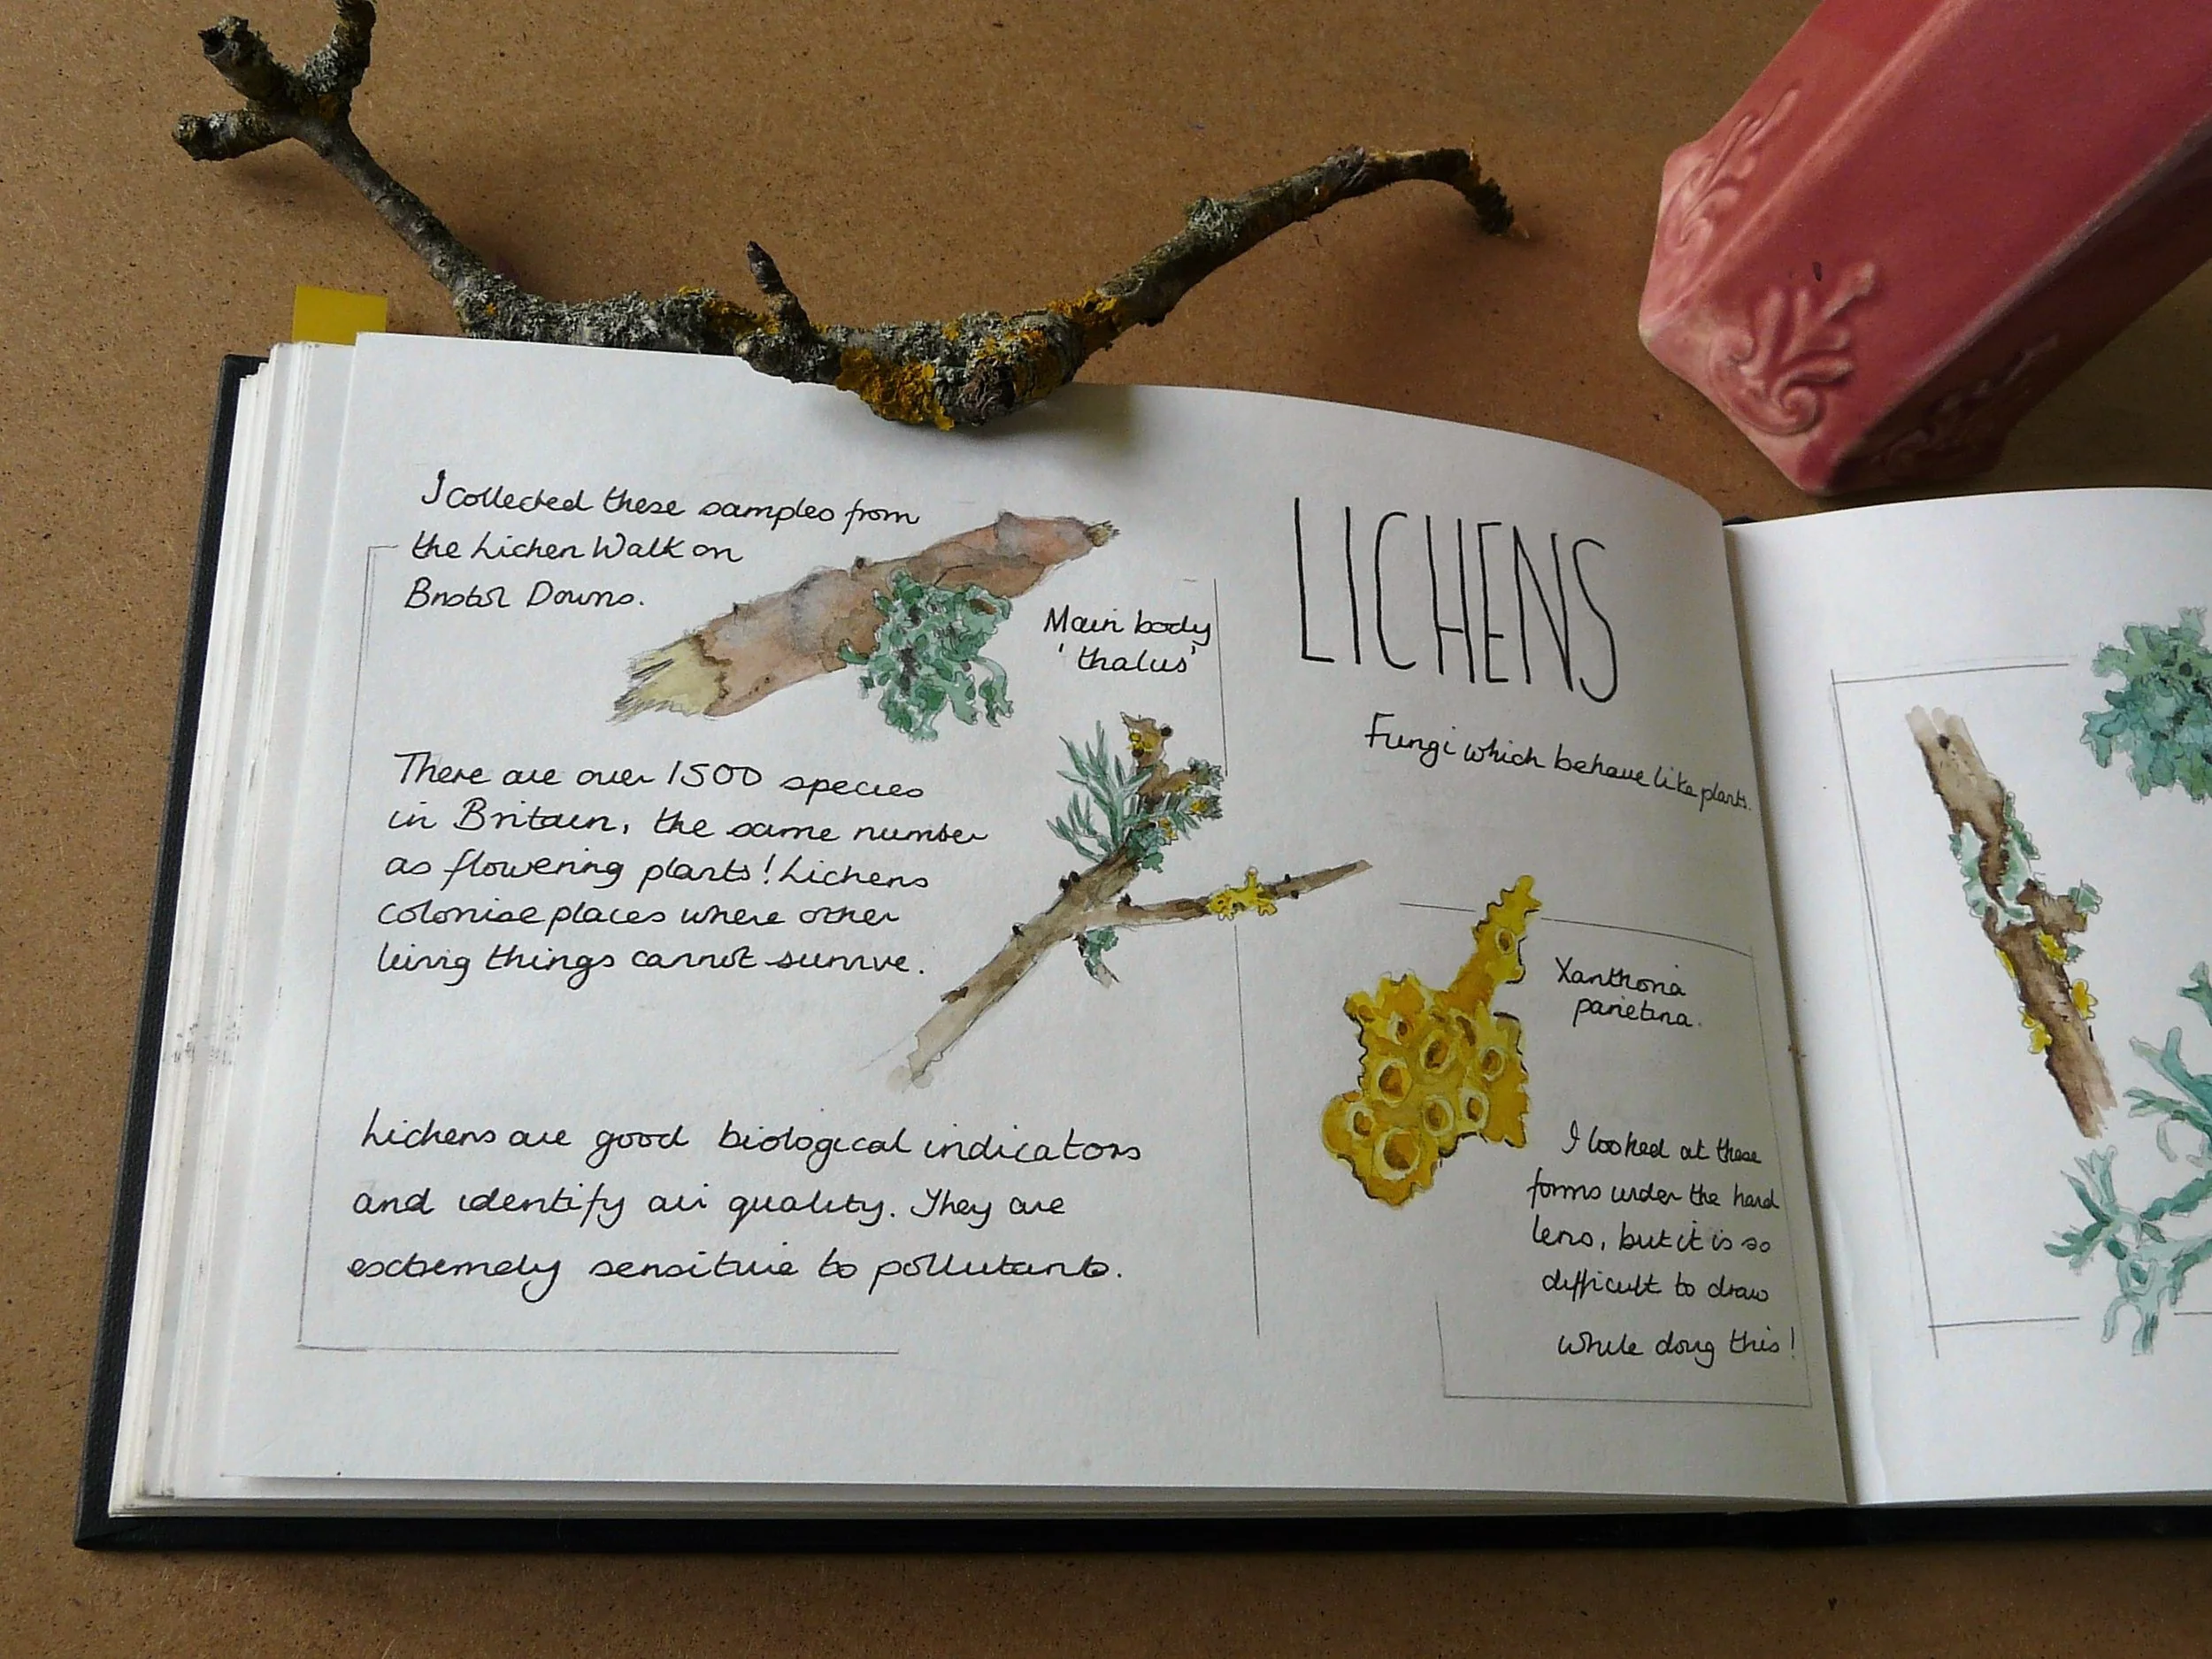 I collected these samples from
the Lichen Walk on
Bristol Downs.
Main body
'thalus'
There are over 1500 species
in Britain, the same number
as flowering plants! Lichens
colonise places where other
living things cannot survive.
Lichens are good biological indicators
and identify air quality. They are
extremely sensitive to pollutants.
LICHENS
Fungi which behave like plants.
Xanthoria
parietina.
I looked at these
forms under the hand
lens, but it is so
difficult to draw
while doing this!